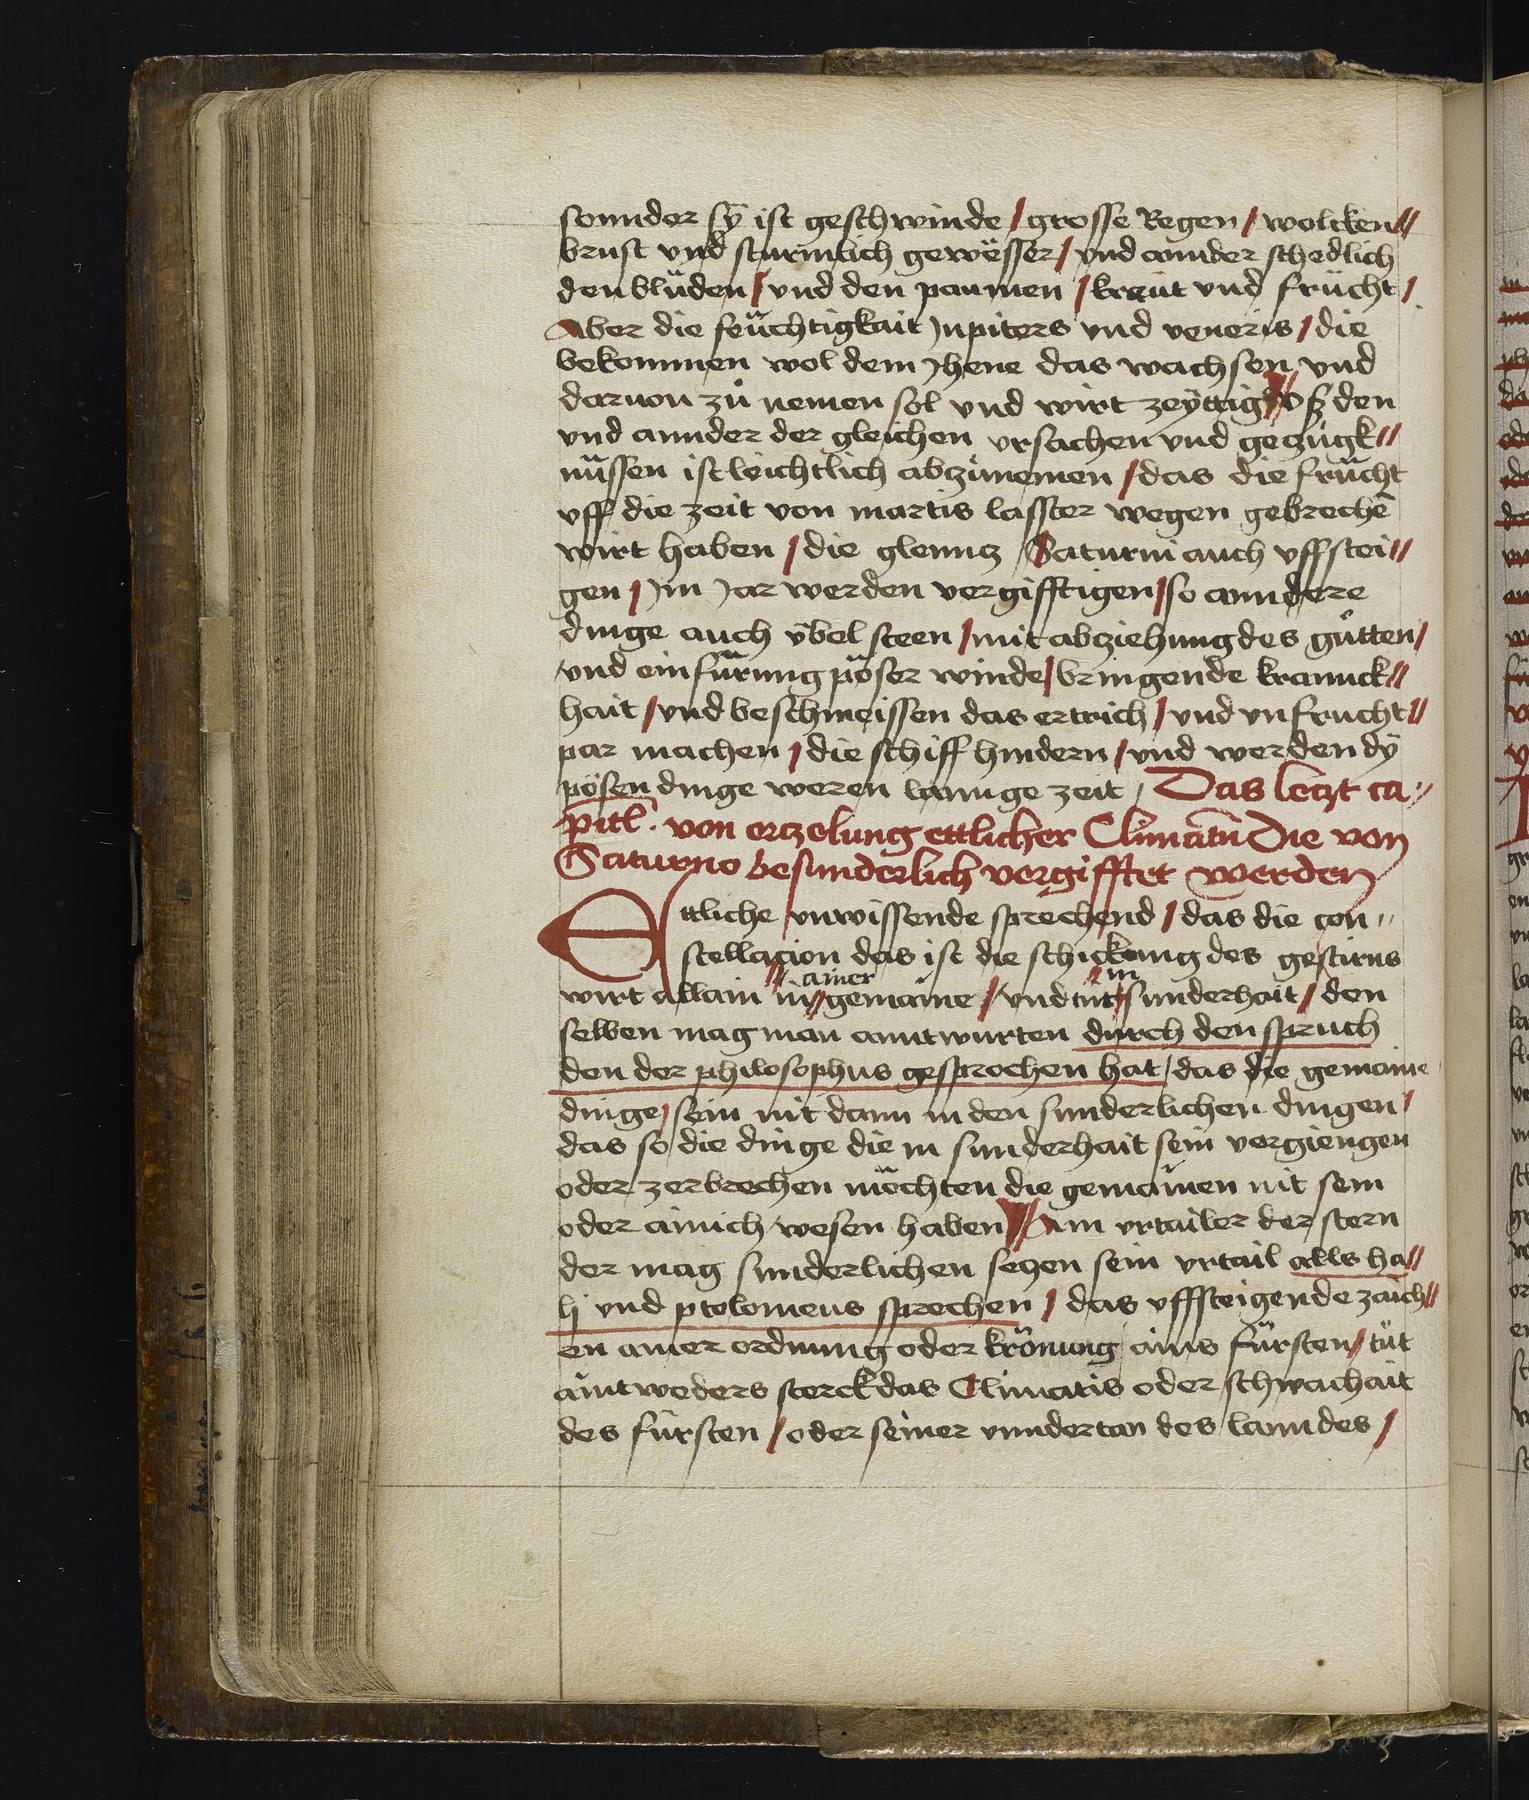 sonnder sÿ ist geschwinde / grosse Regen / wolcken//
brust vnd sturmlich gewësser / vnd annder schedlich
den blüden / vnd den paumen / kraut vnd frücht /
Aber die feüchtigkait Jupiters vnd veneris / die
bekommen wol dem Jhene das wachsen vnd
daruon zů nemen sol vnd wirt zeÿttig vſz den
vnd annder der gleichen vrsachen vnd gezügk//
nüssen ist leichtlich abzůnemen / das die frücht
vff die zeit von martis lasster wegen gebrechē
wirt haben / die glenntz Saturni auch vffstei//
gen / Jm Jar werden vergifftigen / so anndere
dinge auch v̈bel steen / mit abziehung des gůtten /
vnd einfürung pöser winde / bringende kranck//
hait / vnd beschmeissen das ertrich / vnd vnfrucht//
par machen / die schiff hindern / vnd werden dÿ
pösen dinge weren lannge zeit / Das letzt ca//
pitl. von ertzelung ettlicher Climatū Die von
Saturno besunderlich vergifftet werden
Ettliche vnwissende sprechend / das die con//
stellacion das ist die schickung des gestirns
wirt allain in // ainer gemaine / vnd nit in sunderhait / den
selben mag man anntwurten durch den spruch
den der philosophus gesprochen hat / das die gemaine
dinge / sein nit dann in den sunderlichen dingen /
das so die dinge die in sunderhait sein vergiengen
oder zerbrechen möchten die gemainen nit sein
oder ainich wesen haben // Ain vrtailer der stern
der mag sunderlichen setzen sein vrtail alls ha//
lj vnd ptolomeus sprechen / das vffsteigende zaich//
en ainer ordnung oder krönung ains fürsten / tüt
aintweders sterck das Climatis oder schwachait
des fürsten / oder seiner vnndertan des lanndes /